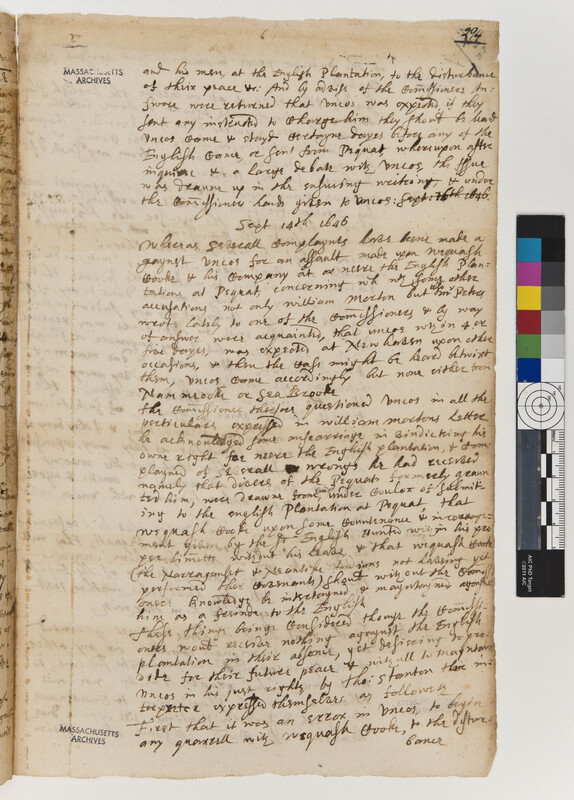 MASSACHUSETTS
ARCHIVES
and his men, at the English Plantation, to the disturbance
of their peace &c: And by advise of the Comissioners An-
swers were returned that Uncos was expected, if they
sent any instructed to Charge him they should be heard
Uncos Came & stayd Certayne dayes before any of the
English Came or sent from Pequat whereupon after
inquirie & a large debate with Uncos, the issue
was drawne up in the ensueing writing & under
the Comissioners hands given to Uncos: Sept: 16th 1646
Sept 14th 1646
Whereas severall Complaynts have bene made a
gaynst Uncos for an assault made upon Wequash
Cooke & his Company at or neere the English Plan-
tations at Pequat, concerning wch & some other
accusations not only william Morton but mr Peters
wrote lately to one of the Comissioners & by way
of answer were acquainted, that Uncos wthin 4 or
five dayes, was expected at Newhaven upon other
occasions, & then the Case might be heard betwixt
them, Uncos Came accordingly but none either from
Nammeocke or Sea Brooke
the Comissioners therfore questioned Uncos in all the
particulars expressed in william mortons Letter
he acknowledged some miscarriage in vindicting his
owne right soe neere the English plantation, & Com
playned of severall wrongs he had received
namely that divers of the Pequats formerly graun
ted him, were drawne from under Coulor of submit
ing to the english Plantation at Pequat, that
wequash Cooke upon some Countenance & incourage-
ment given by the English hunted within his pro
per limitts without his leave & that wequash Cooke
(the Narraganset & Neantick sovions not haveing yet
performed their Covenants) should without the Comissi
oners knowledge be intertayned & mayntayned against
him as a seconde to the English
These things being Considered though the Comissi-
oners would receive nothing agaynst the English
plantation in their absence, yet desireing to pro-
vide for their future peace & with all to mayntayne
Uncos in his just rights by tho: Stanton their in-
terpreter expressed themselves as followeth
First that it was an error in Uncos to begin
any quarrell with wequash Cooke, to the distur-
bance
MASSACHUSETTS
ARCHIVES
AIC PhD Target